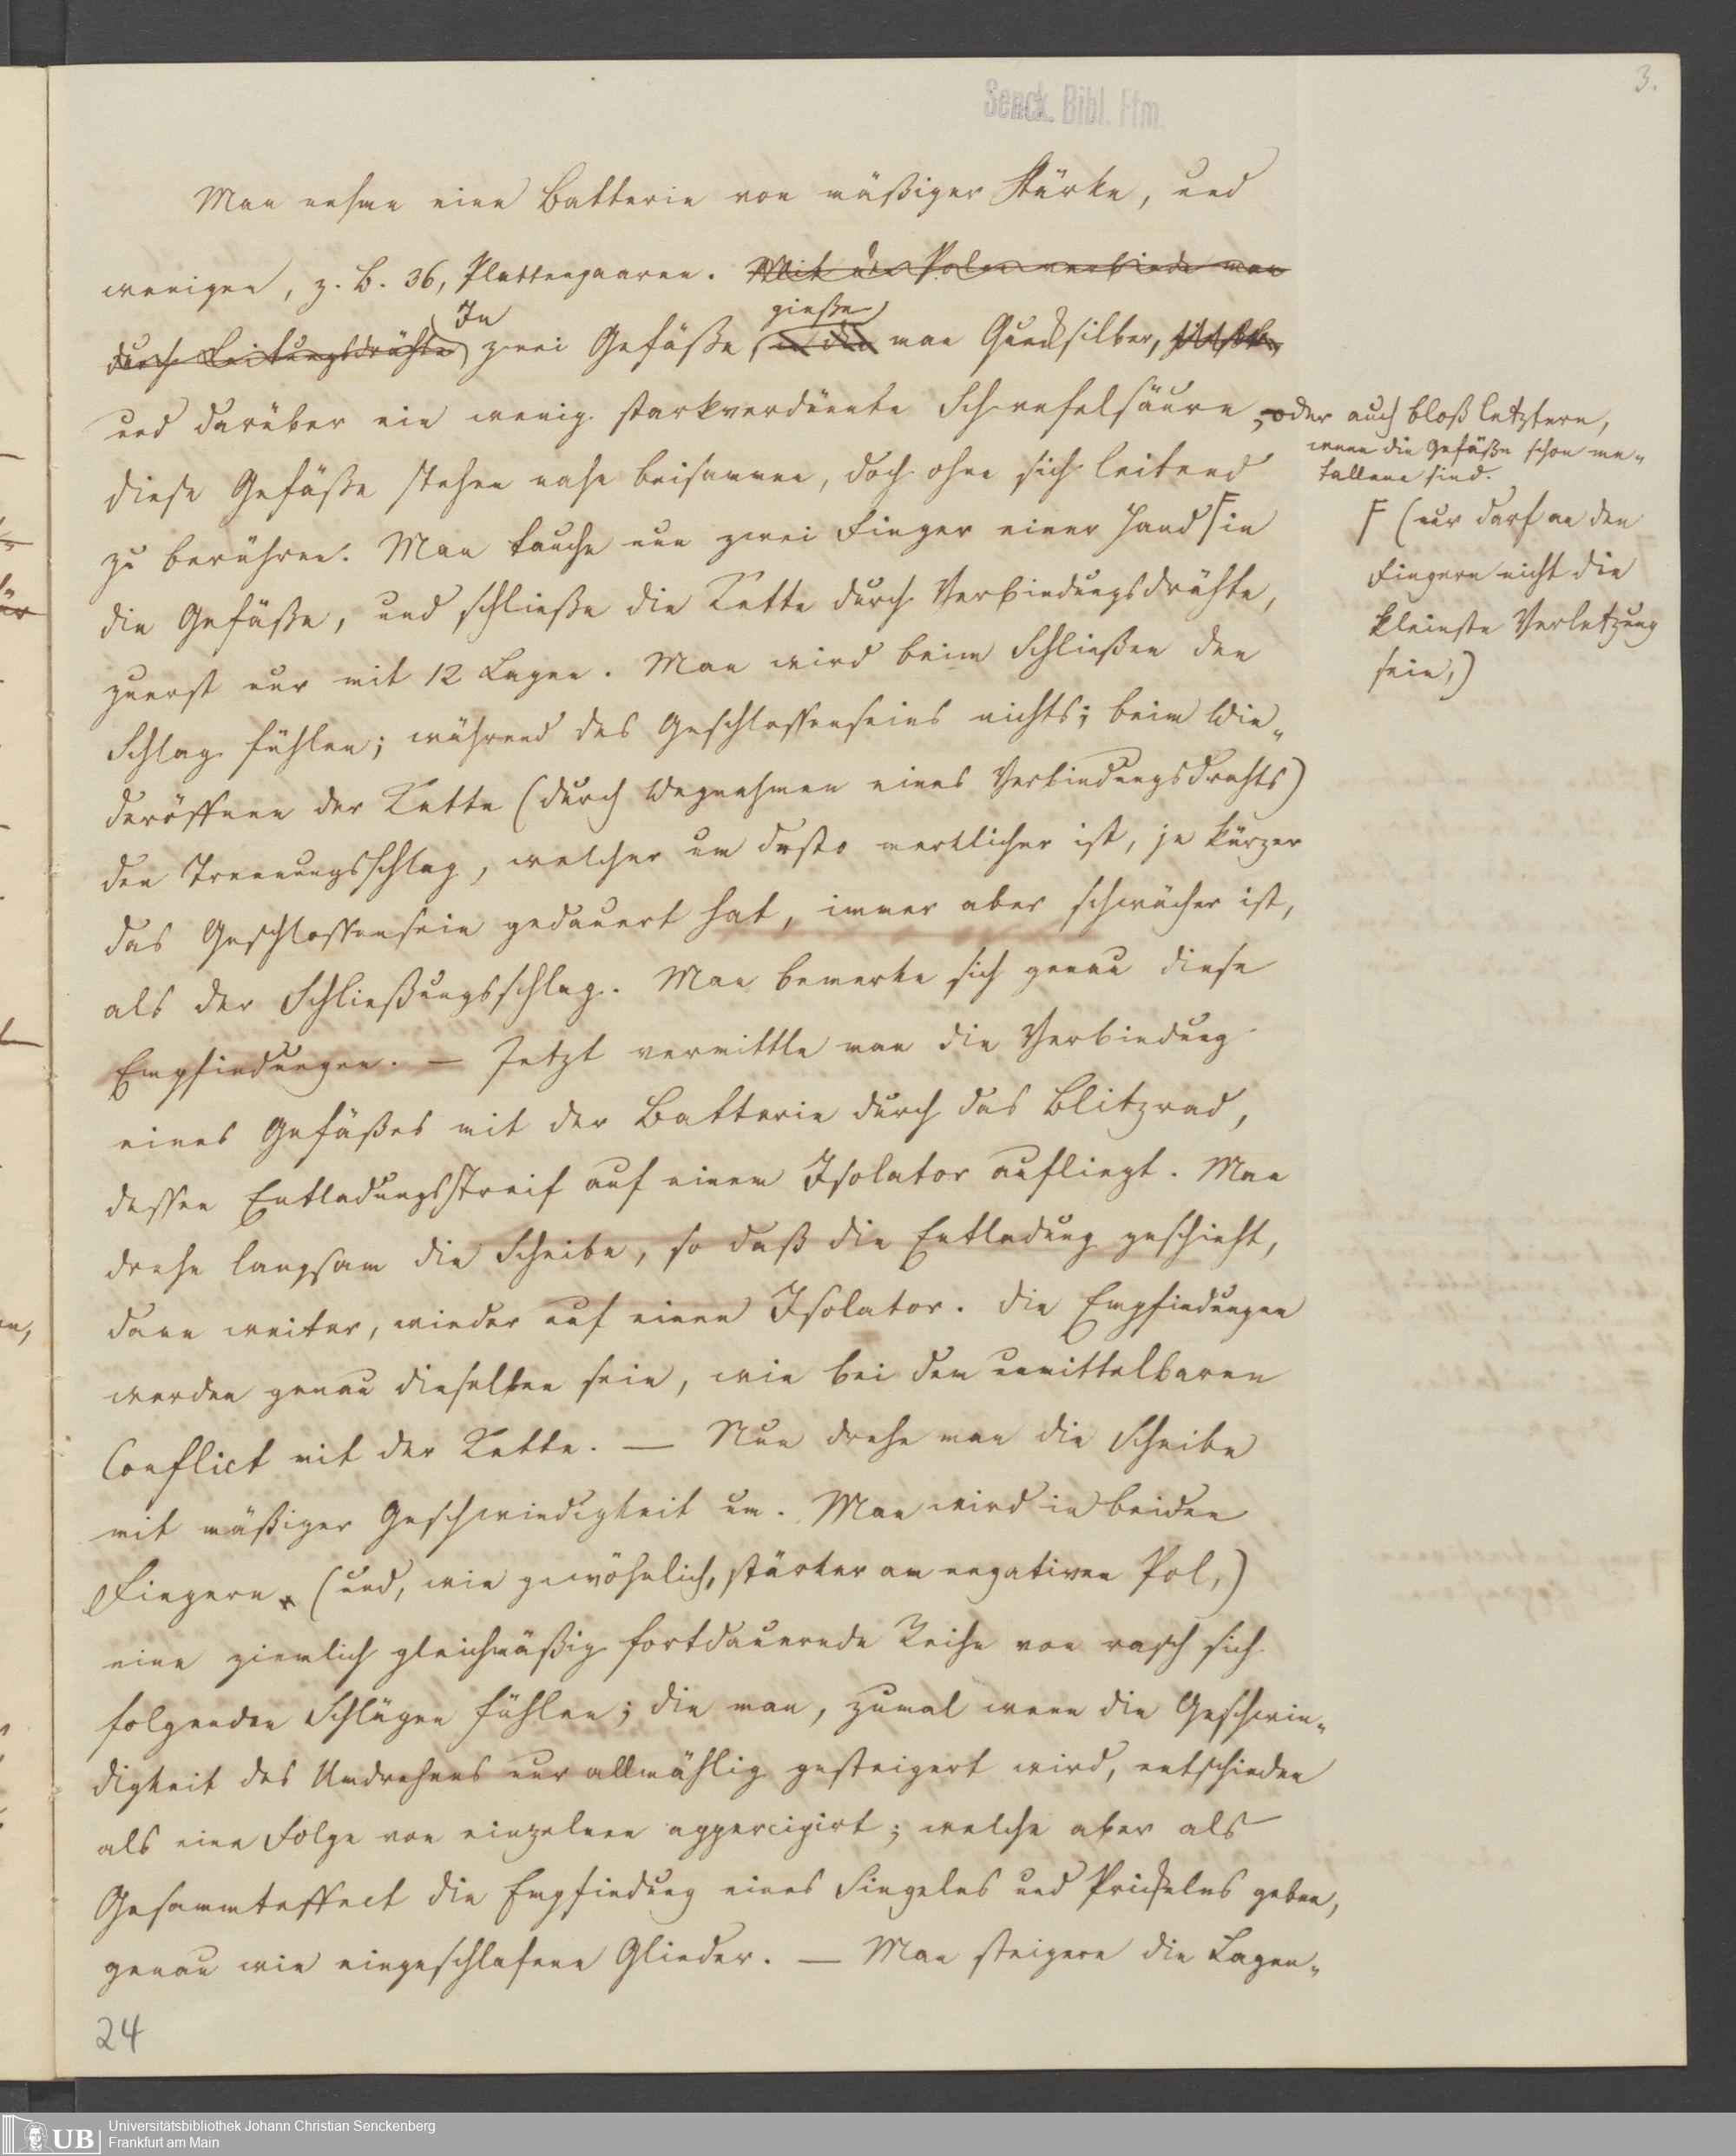 3.
Senck. Bibl. Ffm.
Man nehme eine Batterie von mäßiger Stärke, und
wenigen, z. B. 36, Plattenpaaren. Mit den Polen verbinde man
durch Leitungsdrähte In zwei Gefäße, in die gieße man Quecksilber,
und darüber ein wenig starkverdünnte Schwefelsäure, oder auch bloß letztere,
wenn die Gefäße schon me-
tallene sind.
diese Gefäße stehen nahe beisammen, doch ohne sich leitend
zu berühren. Man tauche nun zwei Finger einer Hand F in
F (nur darf an den
Fingern nicht die
kleinste Verletzung
sein,)
die Gefäße, und schließe die Kette durch Verbindungsdrähte,
zuerst nur mit 12 Lagen. Man wird beim Schließen den
Schlag fühlen; während des Geschlossenseins nichts; beim Wie-
deröffnen der Kette (durch Wegnehmen eines Verbindungsdrahts)
den Trennungsschlag, welcher um desto merklicher ist, je kürzer
das Geschlossensein gedauert hat, immer aber schwächer ist,
als der Schließungsschlag. Man bemerke sich genau diese
Empfindungen. — Jetzt vermittle man die Verbindung
eines Gefäßes mit der Batterie durch das Blitzrad,
dessen Entladungsstreif auf einem Isolator aufliegt. Man
drehe langsam die Scheibe, so daß die Entladung geschieht,
dann weiter, wieder auf einen Isolator. Die Empfindungen
werden genau dieselben sein, wie bei dem unmittelbaren
Conflict mit der Kette. — Nun drehe man die Scheibe
mit mäßiger Geschwindigkeit um. Man wird in beiden
Fingern, (und, wie gewöhnlich, stärker am negativen Pol,)
eine ziemlich gleichmäßig fortdauernde Reihe von rasch sich
folgenden Schlägen fühlen; die man, zumal wenn die Geschwin-
digkeit des Umdrehens nur allmählig gesteigert wird, entschieden
als eine Folge von einzelnen appercipirt; welche aber als
Gesammteffect die Empfindung eines Singelns und Prickelns geben,
genau wie eingeschlafene Glieder. — Man steigere die Lagen-
24
UB
Universitätsbibliothek Johann Christian Senckenberg
Frankfurt am Main